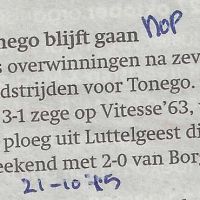 nego blijft gaan NOP
s overwinningen na zev
dstrijden voor Tonego.
3-1 zege op Vitesse'63,
ploeg uit Luttelgeest di
eekend met 2-0 van Bor
21-10-15